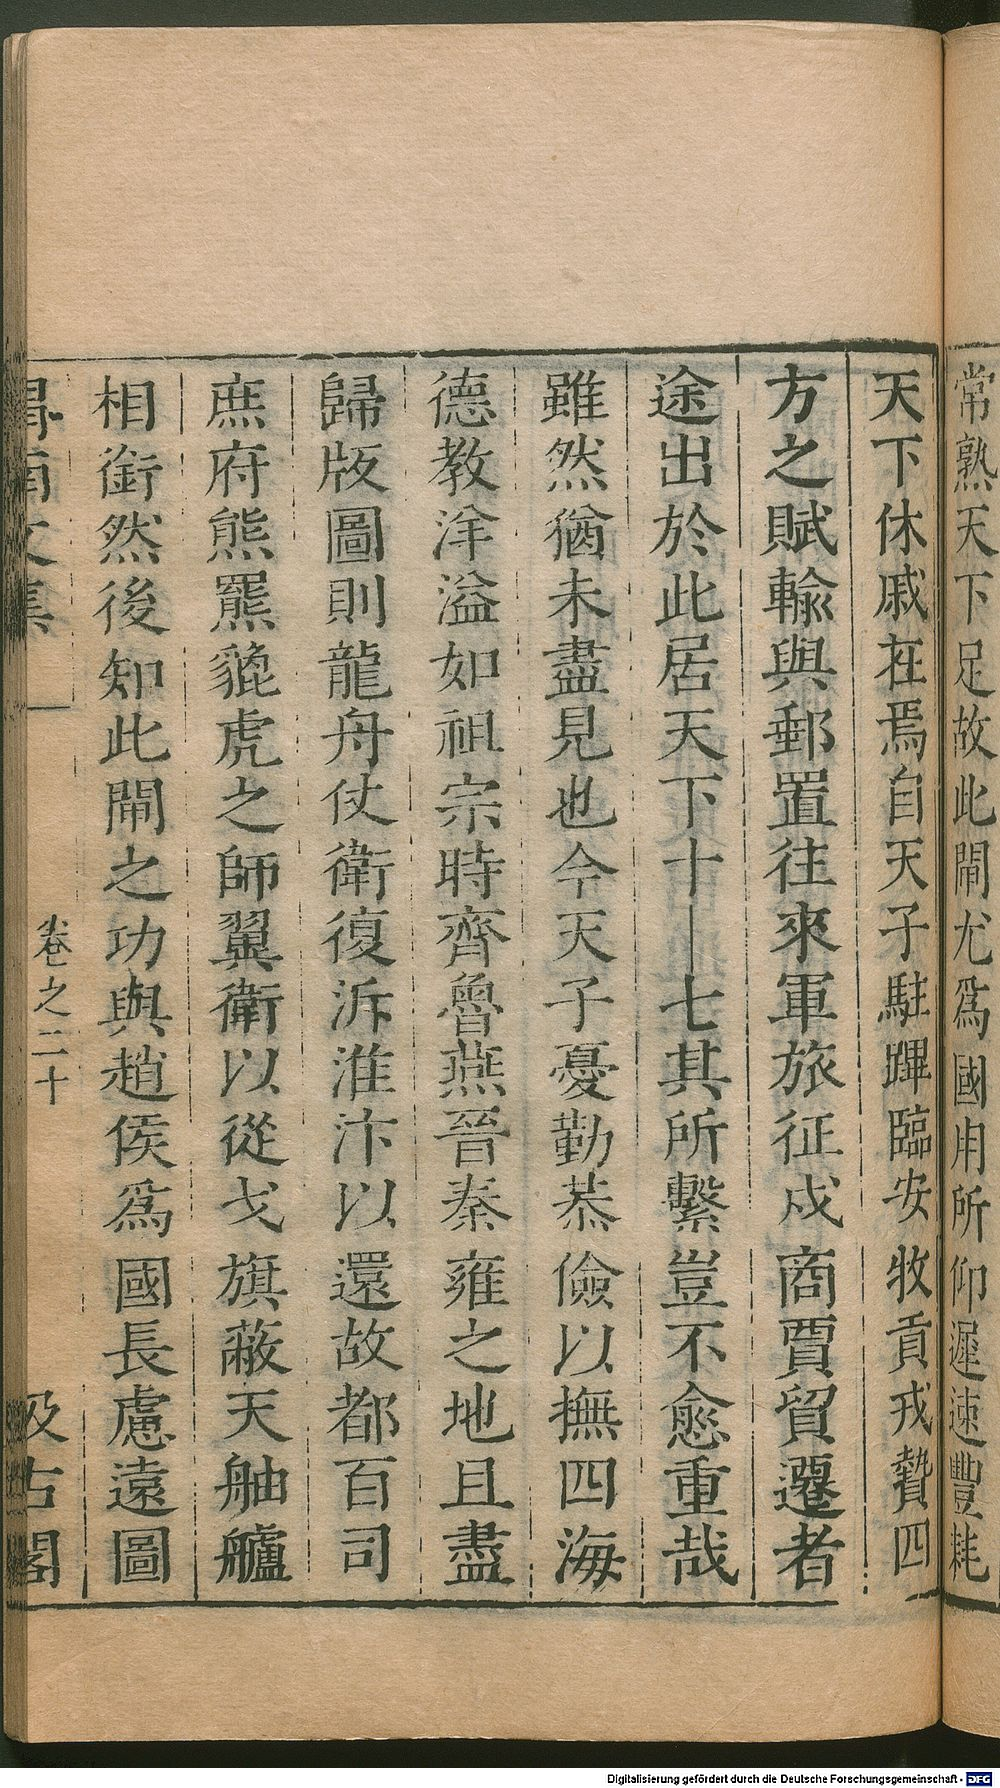 常熟天下足故此閘尤爲國用所仰遲速豐耗
天下休戚在焉自天子駐蹕臨安牧貢戎贄四
方之賦輸與郵置往來軍旅征戍商賈貿遷者
途出於此居天下十一七其所繫豈不愈重哉
雖然猶未盡見也今天子憂勤恭儉以撫四海
德教洋溢如祖宗時齊魯燕晉秦雍之地且盡
歸版圖則龍舟仗衛復泝淮汴以還故都百司
庶府熊羆貔虎之師翼衛以從戈旗蔽天舳艫
相銜然後知此閘之功與趙侯爲國長慮遠圖
卷之二十
汲古閣
Digitalisierung gefördert durch die Deutsche Forschungsgemeinschaft - DFG